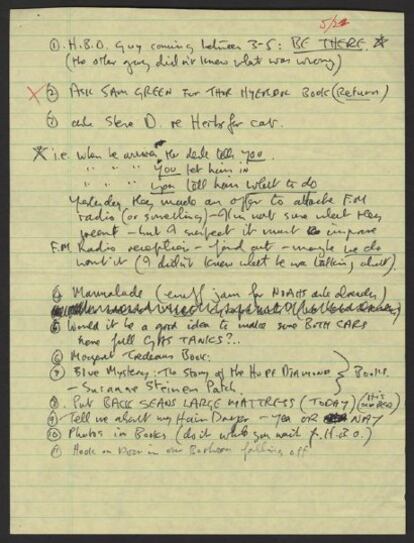 5/24
① H.B.O. Guy coming between 3-5: BE THERE. *
(the other guy didn't know what was wrong)
X ② ASK SAM GREEN FOR THOR HYERDAL BOOK (RETURN)
③ ask Steve D. re Herbs for cats.
* i.e. when he arrives the desk tells YOU
" " " " YOU let him in
" " " " YOU tell him what to do
Yesterday they made an offer to attach F.M
radio (or something) – I'm not sure what they
meant – but I suspect it meant to improve
F.M Radio reception – find out – maybe we do
want it (I didn't know what he was talking about).
④ Marmalade (enuff jam for NOAHS ark already)
⑤ Would it be a good idea to make sure BOTH CARS
have full GAS TANKS?..
⑥ Margaret Trudeaus Book:
⑦ Blue Mystery: The Story of the HOPE DIAMOND } BOOKS.
– Suzanne Steinem Patch
⑧ PUT BACK SEANS LARGE MATTRESS (TODAY)
⑨ Tell us about my Hair Dryer – YEA OR NAY
⑩ Photos in Books (do it while you wait for H.B.O.)
Hook on Door in our Bathroom falling off